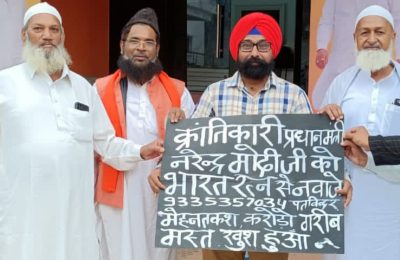 क्रांतिकारी प्रधानमंत्री
नरेन्द्र मोदीजी को
भारत रत्न से नवाजे
9335357034 पतविन्दर
मेहनतकश, करोडो गरीब
मस्त खुश हुआ